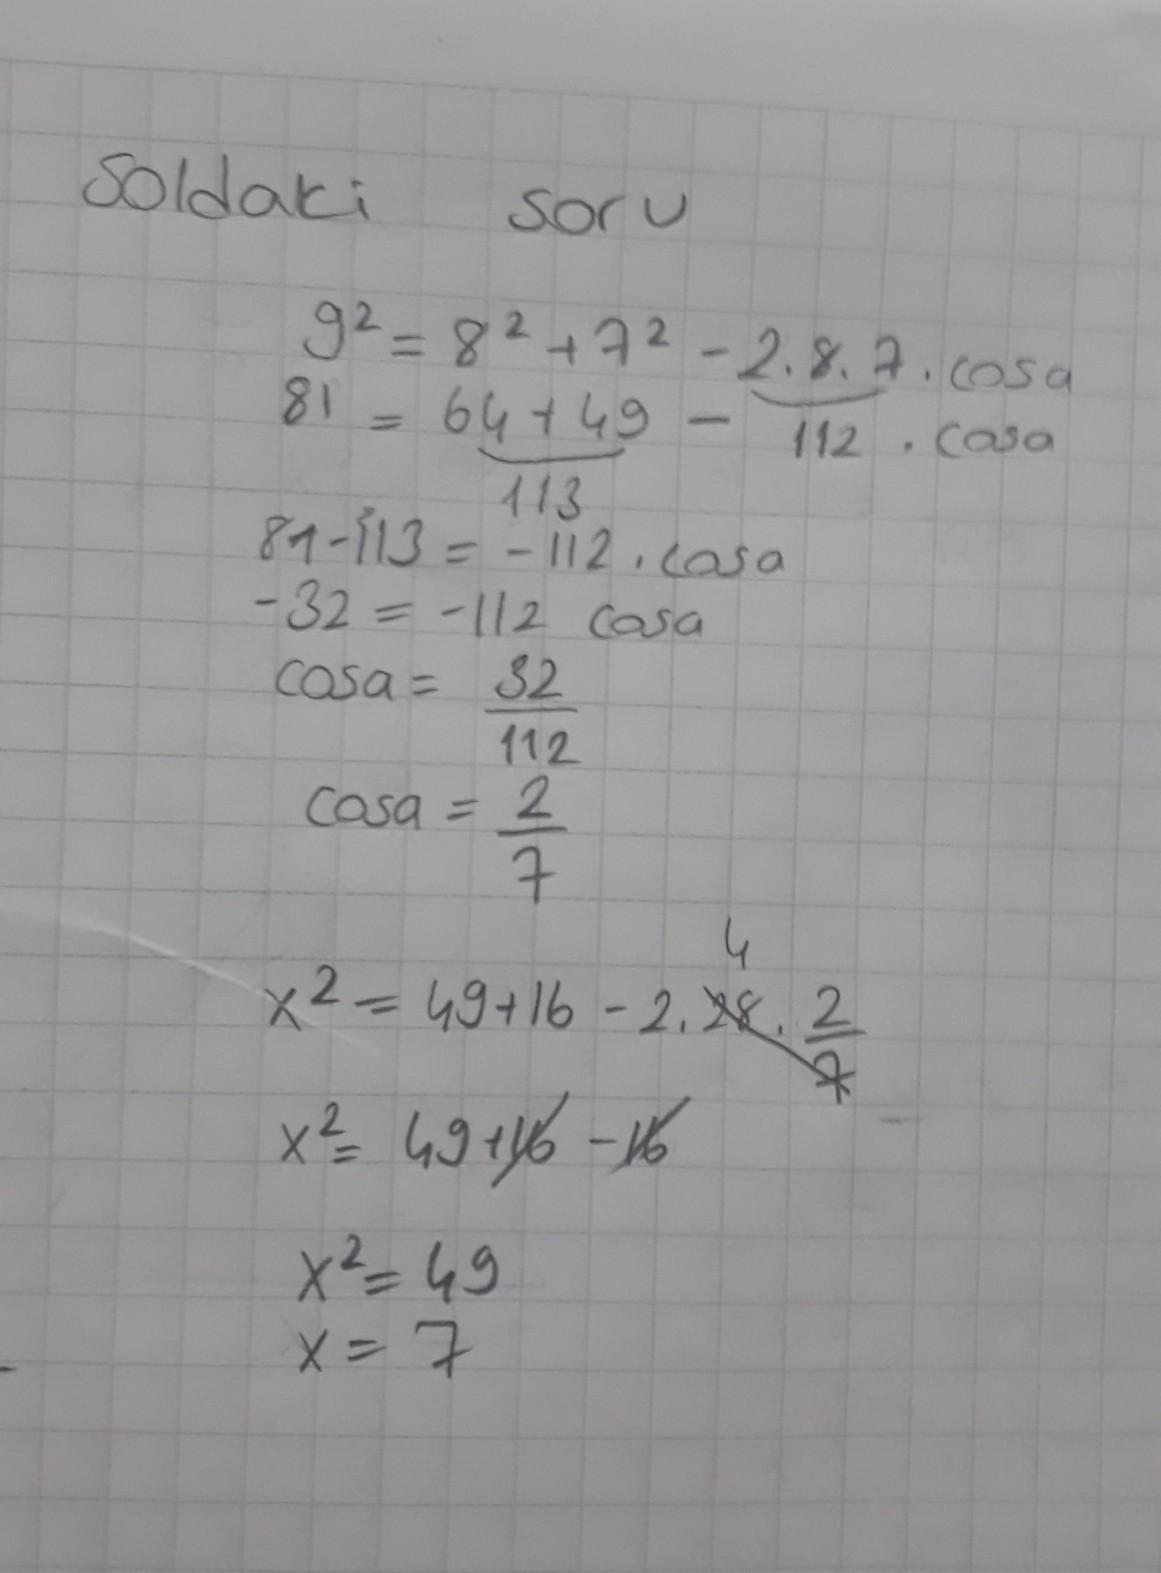 Soldaki soru
9² = 8² + 7² - 2.8.7.cosa
81 = 64 + 49 - 112 . cosa
113
81-113 = -112 . cosa
-32 = -112 cosa
cosa = 32/112
cosa = 2/7
4
x² = 49+16 - 2.28.2/7
x² = 49+16 -16
x² = 49
x = 7